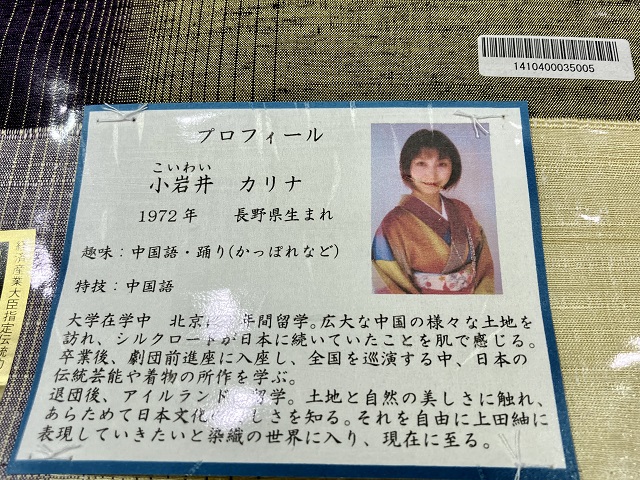 1410400035005
プロフィール
こいわい
小岩井 カリナ
1972年 長野県生まれ
趣味：中国語・踊り(かっぽれなど)
特技：中国語
大学在学中 北京に 年間留学。広大な中国の様々な土地を
訪れ、シルクロードが日本に続いていたことを肌で感じる。
卒業後、劇団前進座に入座し、全国を巡演する中、日本の
伝統芸能や着物の所作を学ぶ。
退団後、アイルランド 留学。土地と自然の美しさに触れ、
あらためて日本文化 しさを知る。それを自由に上田紬に
表現していきたいと染織の世界に入り、現在に至る。
経済産業大臣指定伝統的